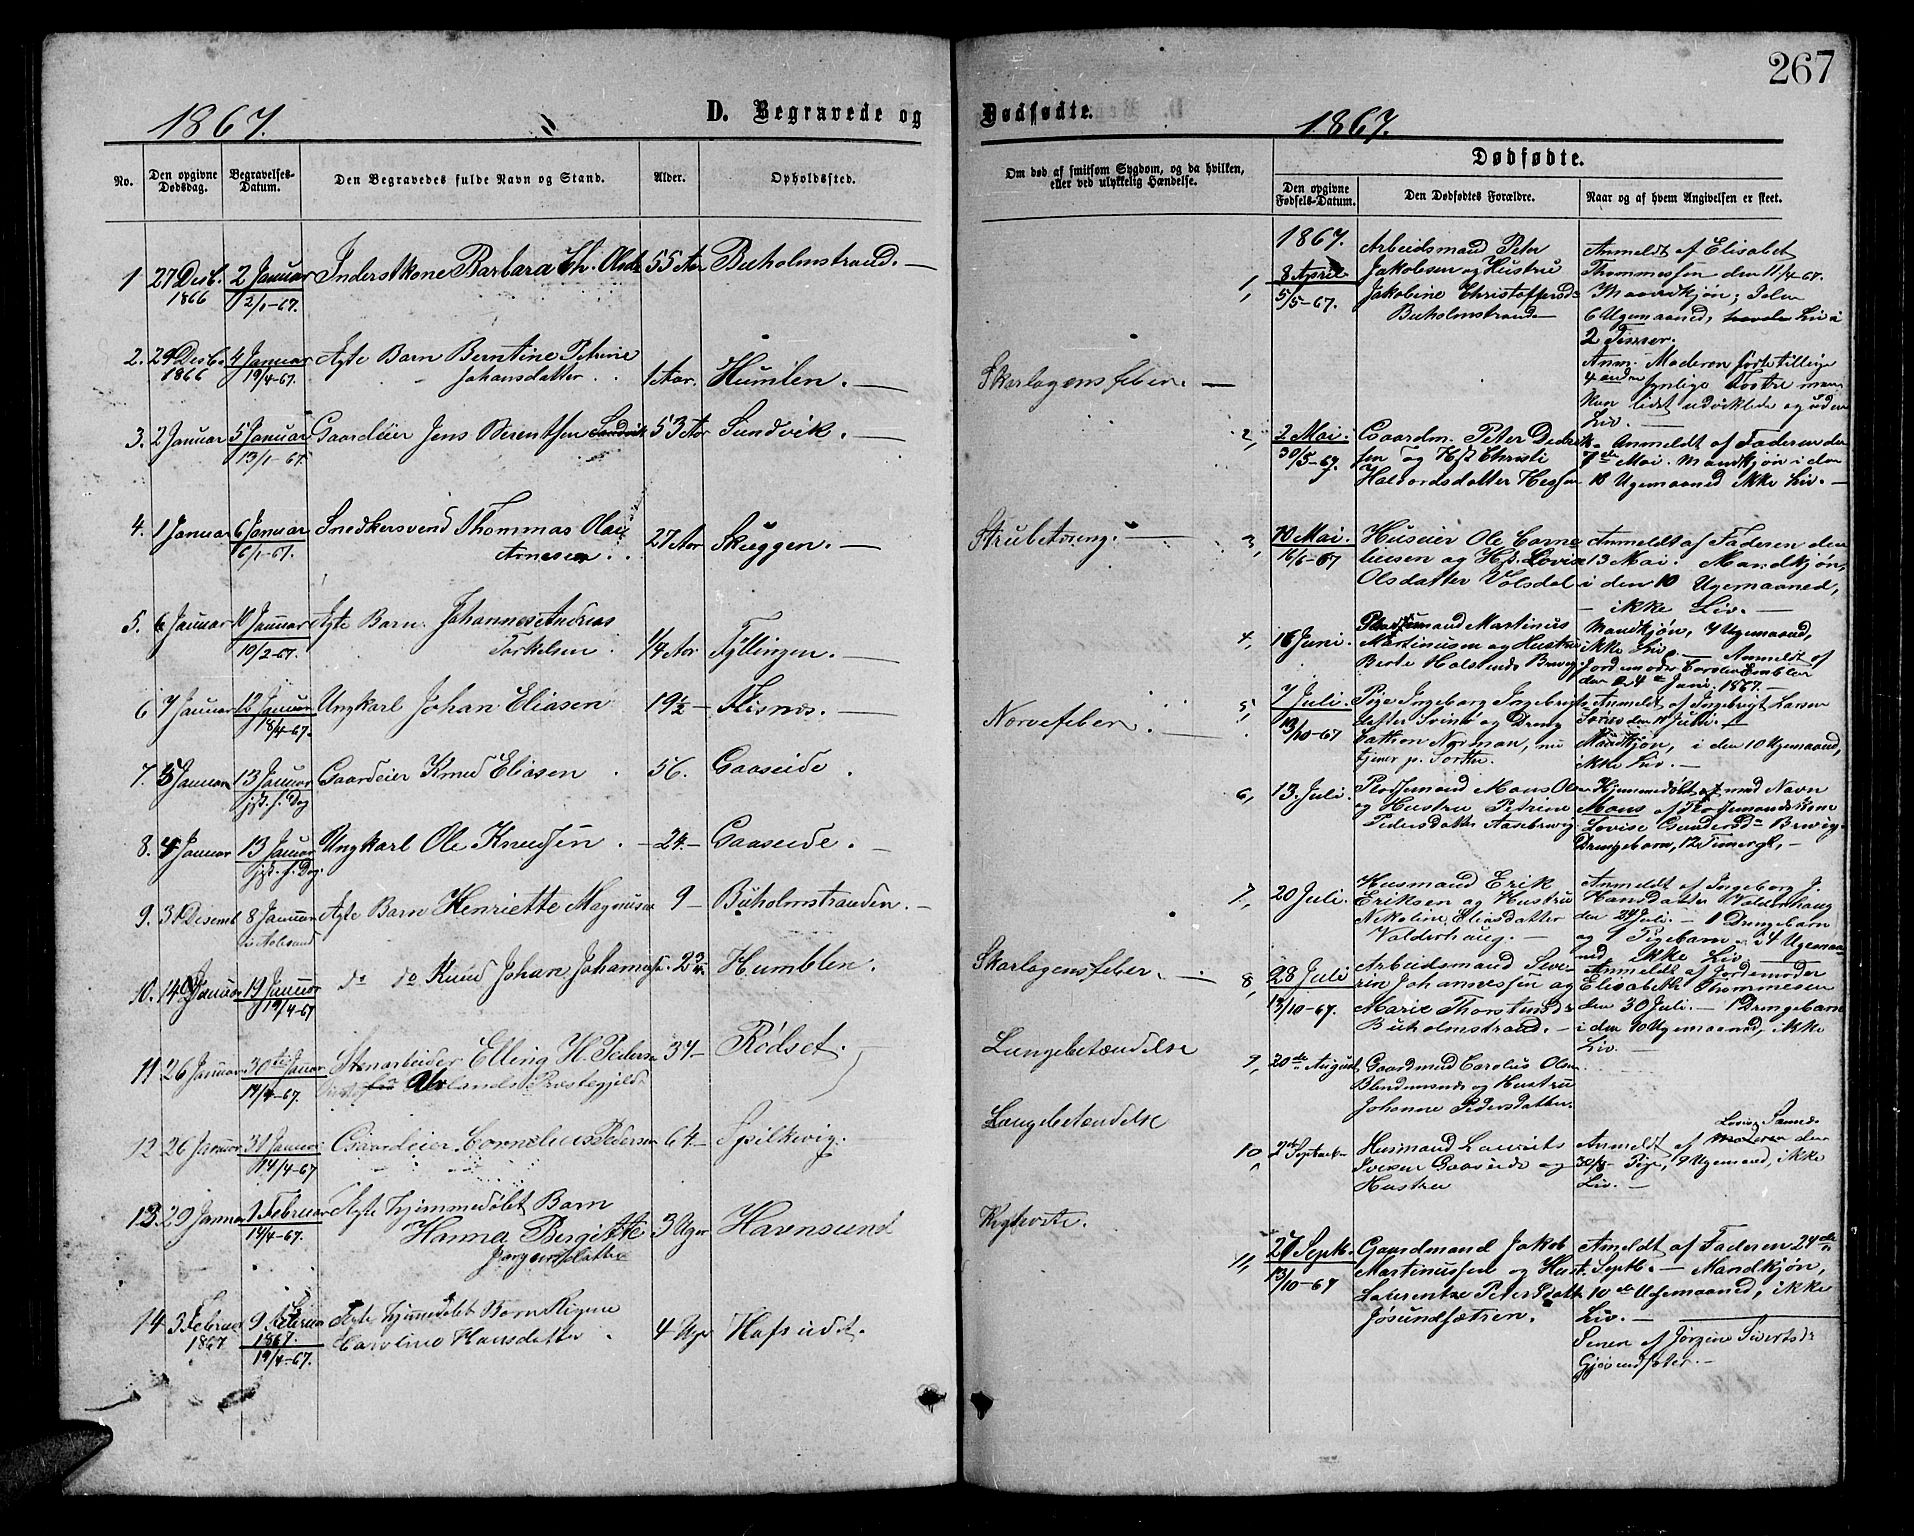 267
1867.
D. Begravede og
No.
Den opgivne Dødsdag.
Begravelses-Datum.
Den Begravedes fulde Navn og Stand.
Alder.
Opholdssted.
1 27 Desb. 1866 2 Januar 2/1-67. Inderstkone Barbara Th. Olsdt 55 Aar Buholmstrand. —
2. 29 Desb. 1866 4 Januar 19/4-67. Ægte Barn Berntine Petrine
Johansdatter 1 Aar. Humlen. —
3. 2 Januar 5 Januar 13/1-67. Gaardeier Jens Berentsen Sandvik 53 Aar Sundvik. —
4. 1 Januar 6 Januar 6/1-67. Snedkersvend Thommas Olai
Arnesen 27 Aar Skuggen. —
5. 6 Januar 10 Januar 10/2-67. Ægte Barn Johannes Andreas
Torkelsen 1/4 Aar Fyllingen. —
6 7 Januar 12 Januar 18/4-67. Ungkarl Johan Eliasen 19 1/2 — Flisnes. —
7. 5 Januar 13 Januar jst. s. Dag Gaardeier Knud Eliasen 56. Gaaseide.
8. 4 Januar 13 Januar jst. s. Dag. Ungkarl Ole Knudsen 24 — Gaaseide. —
9. 31 Desemb 8 Januar i Aalesund Ægte Barn Henriette Magnusen 9 — Buholmstranden. —
10. 14 Januar 19 Januar 19/4-67 do do Knud Johan Johannesen Humblen.
11 26 Januar 30te Januar 19/4-67. Stenarbeider Elling H. Pedersen
Præstegjeld 34 — Rødset.
12 26 Januar 31 Januar 14/4-67 Gaardeier Cornelius Pedersen 64. — Spilkevig. —
13. 29 Januar 1 Februar 19/4-67. Ægte hjemmedøbt Barn
Hanna Birgitte
Jørgensdatter 3 Uger Havnsund
14 3 Februar 1867 9 Februar 1867. 19/4-67. Ægte hjemmedøbt Barn Regine
Caroline Hansdatter 4 Uger Hafsudt.
Dødfødte.
1867.
Om død af smitsom Sygdom, og da hvilken, eller ved ulykkelig Hændelse.
Skarlagensfeber. —
Strubetæring. —
Nervefeber. —
Skarlagensfeber. —
Lungebetændelse
Lungebetændelse
Kighoste.
Dødfødte.
Den opgivne Fødsels-Datum.
Den Dødfødtes Forældre.
Naar og af hvem Angivelsen er skeet.
1867.
1, 8 April 5/5-67. Arbeidsmand Peter
Jakobsen og Hustru
Jakobine Christoffersd-
Buholmstrand —
Anmeldt af Elisabet
Thommessen den 11/4-67.
Mandkjøn;
6 Ugemaaned, havde Liv i
2 Timer.
Anm. Moderen fødte tillige
4 Fostre men
kun lidet udviklede og uden
Liv. —
2, 2 Mai. 30/5-67. Gaardm. Peter Didrik-
sen og Hst Christi
Halvordsdatter Hessen
Anmeldt af Faderen den
7de Mai. Mandkjøn i den
Ugemaaned ikke Liv. —
3, 10 Mai. 16/6-67 Huseier Ole Corne
liusen og Hst. Lovise
Olsdatter Volsdal
Anmeldt af Faderen den
13 Mai. Mandkjøn,
i den 10 Ugemaaned,
ikke Liv. —
4, 16 Juni. Pladsemand Martinus
Martinusen og Hustru
Berte Brevig
Mandkjøn, 7 Ugemaaned,
ikke Liv. — Anmeldt af
Jordemoder Emblem
den 24de Juni, 1867. —
5, 7 Juli. 13/10-67 Pige Ingeborg Ingebrigts
datter Svinø og Dreng
Norman, nu
tjener p.
Anmeldt af Ingebrigt Larsen
den 11 Julii. —
Mandkjøn, i den 10 Ugemaaned,
ikke Liv. —
6, 13. Juli. Pladsemand Mons Olsen
og Hustru Petrine
Pedersdatter Aasebrevig
Hjemmedøbt med Navn
Mons af Pladsemandskone
Lovise Gundersdr Brevig.
Drengebarn, 12 Timer gl, —
7, 20 Juli. Husmand Erik
Eriksen og Hustru
Nikoline Eliasdatter
Valderhaug. —
Anmeldt af Ingeborg J.
Hansdatter Valderhaug
den 24 Juli. — 1 Drengebarn
og 1 Pigebarn. i 4 Ugemaa-
ned ikke Liv. —
8, 28 Juli 13/10-67. Arbeidsmand Seve-
rin Johannessen og
Marie Thorstensdr
Buholmstrand. —
Anmeldt af Jordemoder
Elisabeth Thommesen
den 30 Juli. — 1 Drengebarn
i den 10 Ugemaaned, ikke
Liv. —
9, 20de August, Gaardmand Carolus Olsen
Blindemsnes og Hustru
Johanne Pedersdatter.
10, 2de Septbr Husmand Laurits
Iversen Gaaseide og
Hustru
Anmeldt af Moderen den
30/9 Pige, 9 Ugemaaned, ikke
Liv. —
11, 27 Septb. 13/10-67 Gaardmand Jakob
Martinussen og Hust.
Laurentze Petersdatt
Jøsundsætren.
Anmeldt af Faderen 24de
Septb. — Mandkjøn,
10de Ugemaaned, ikke
Liv. —
Senen af Jørgine Sivertsdr